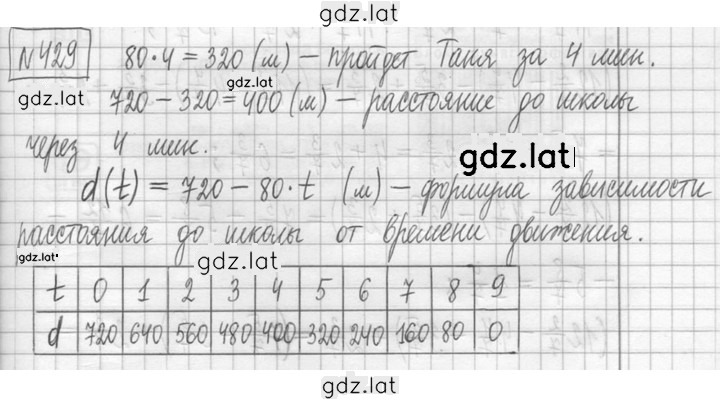 gdz.lat
№429 80·4=320 (м) – пройдет Таня за 4 мин.
gdz.lat
gdz.lat
720–320=400 (м) – расстояние до школы
через 4 мин.
gdz.lat
d(t) = 720 – 80·t (м) – формула зависимости
расстояния до школы от времени движения.
gdz.lat
gdz.lat
t 0 1 2 3 4 5 6 7 8 9
d 720 640 560 480 400 320 240 160 80 0
gdz.lat